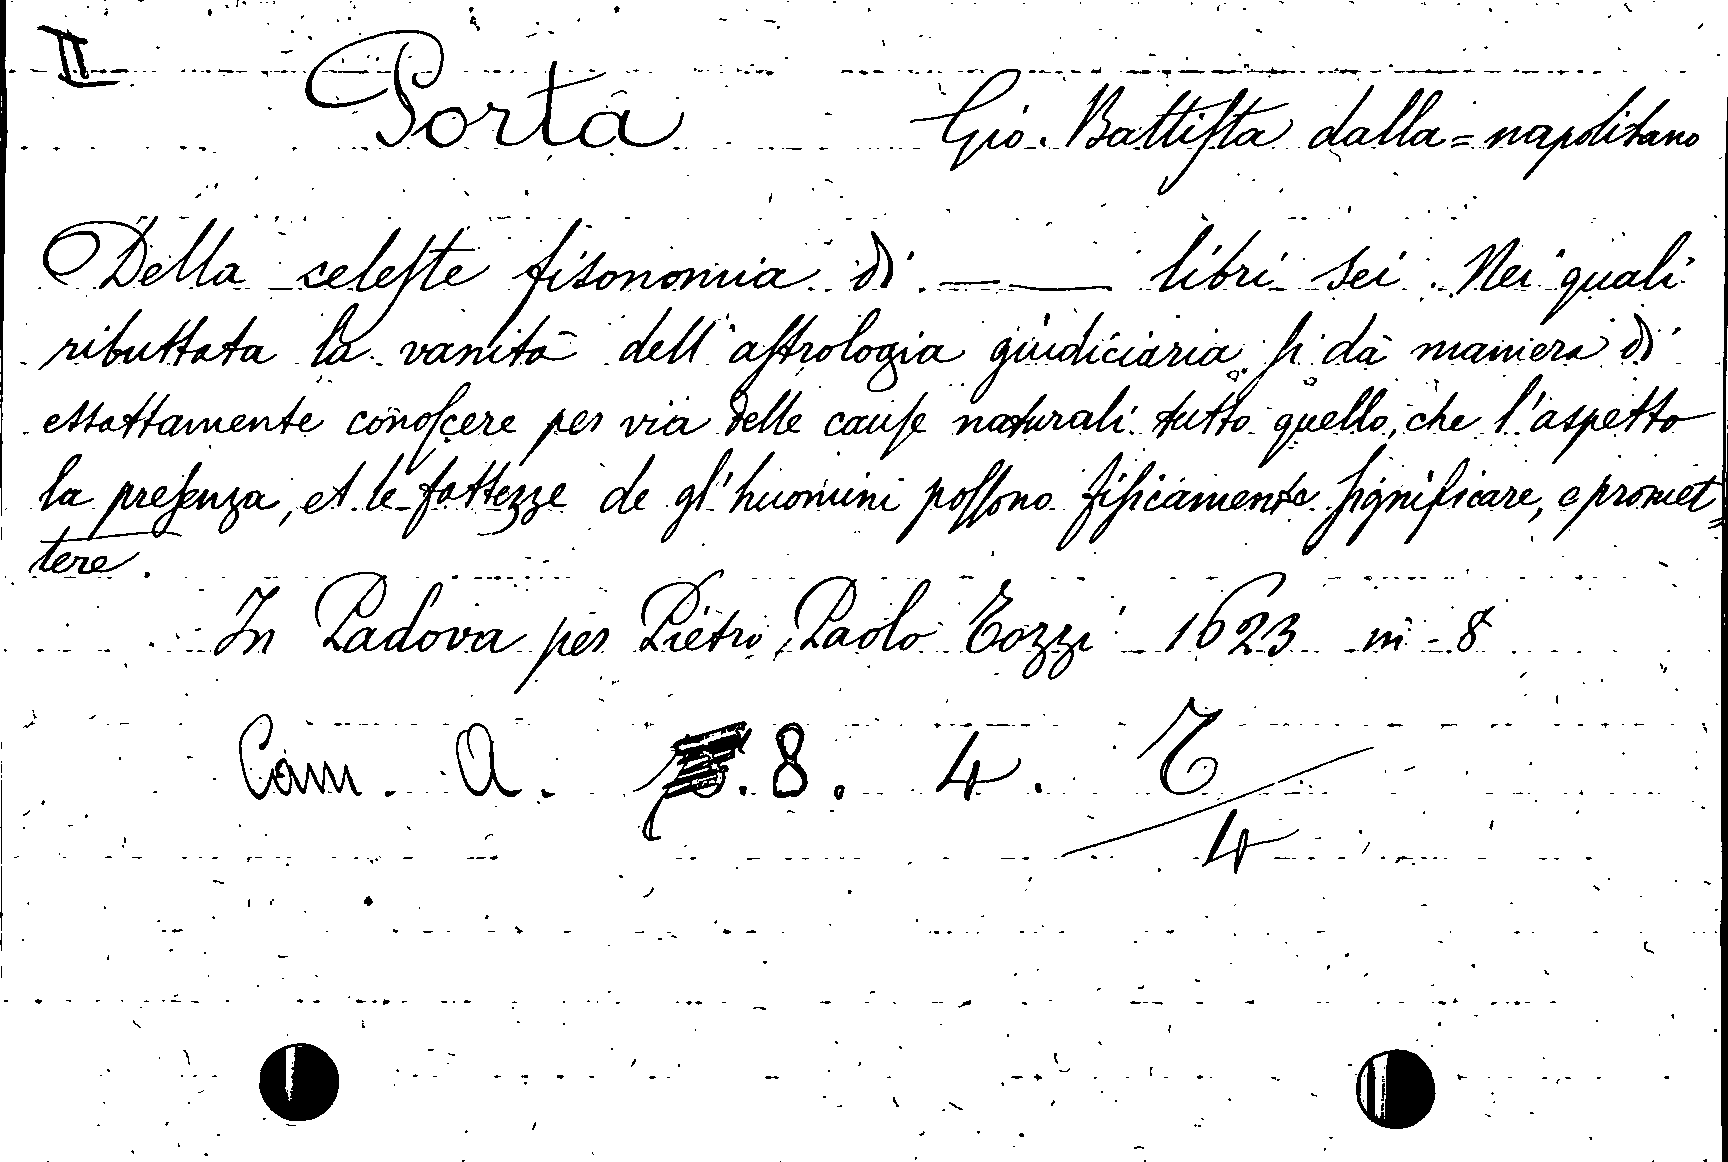 II
Porta Gio. Battista dalla = napolitano
Della celeste fisonomia di —— libri sei. Nei quali
ributtata la vanità dell'astrologia giudiciaria, si dà maniera di
essattamente conoscere per via delle cause naturali tutto quello, che l'aspetto
la presenza, et le fattezze de gl'huomini possono fisicamente significare, e promet=
tere.
In Padova per Pietro Paolo Tozzi 1623 in-8
Cam. A. 8. 4. T/4